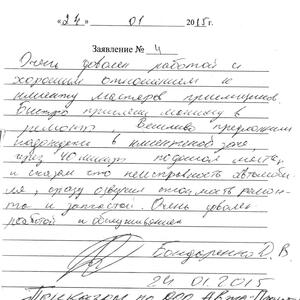 «24» 01 2015г.
Заявление № 4
Очень доволен работой и
хорошим отношением к
клиенту мастеров приемщиков.
Быстро приняли машину в
ремонт. Вежливо предложили
подождать в клиентской зоне,
через 40 минут подошел мастер,
и сказал что неисправность автомоби-
ля, сразу озвучил стоимость ремон-
та и запчастей. Очень доволен
работой и обслуживанием
Бондаренко В
24 01.2015
по ООО